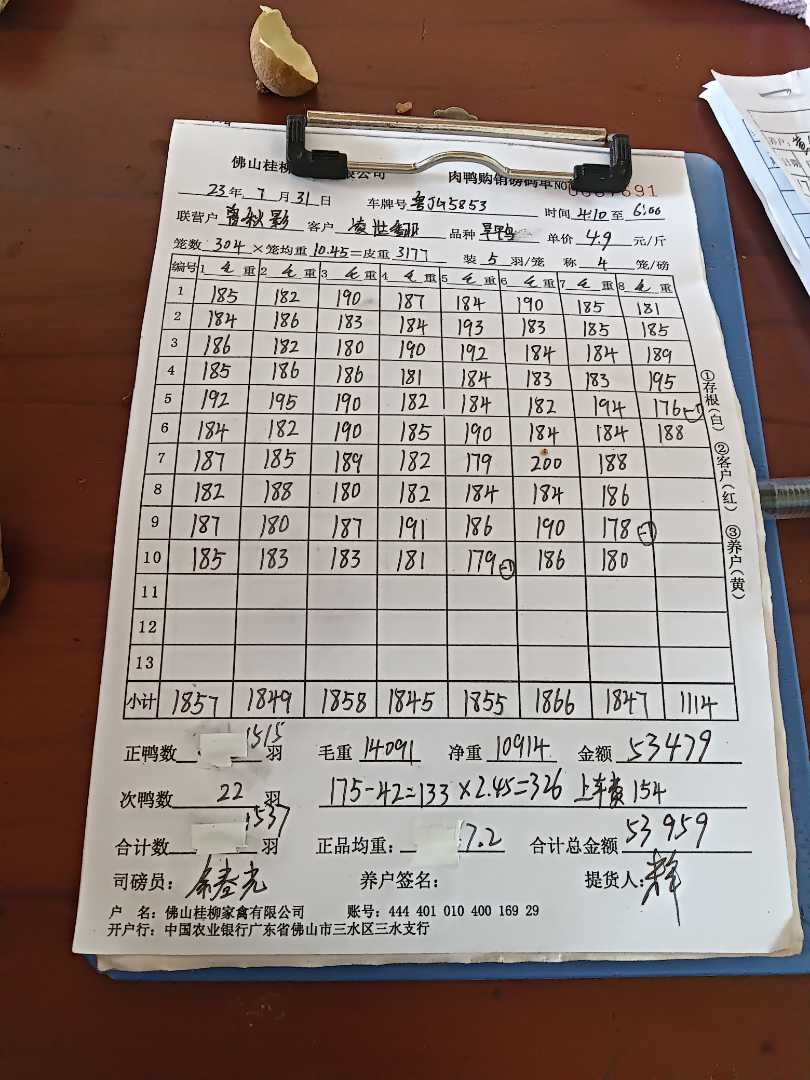 佛山桂柳 限公司 肉鸭购销磅码单 NO 691
23年7月31日 车牌号 粤JG5853 时间 4:10 至 6:00
联营户 客户 品种 单价 4.9 元/斤
笼数 304 ×笼均重 10.45=皮重 3177 装 5 羽/笼 称 4 笼/磅
编号 1 毛重 2 毛重 3 毛重 4 毛重 5 毛重 6 毛重 7 毛重 8 毛重
1 185 182 190 187 184 190 185 181
2 184 186 183 184 193 183 185 185
3 186 182 180 190 192 184 184 189
4 185 186 186 181 184 183 183 195
5 192 195 190 182 184 182 194 176 -1
6 184 182 190 185 190 184 184 188
7 187 185 189 182 179 200 188
8 182 188 180 182 184 184 186
9 187 180 187 191 186 190 178 -1
10 185 183 183 181 179 -1 186 180
11
12
13
小计 1857 1849 1858 1845 1855 1866 1847 1114
①存根(白) ②客户(红) ③养户(黄)
正鸭数 1515 羽 毛重 14091 净重 10914 金额 53479
次鸭数 22 羽 175-42=133×2.45=326 上车费 154
合计数 1537 羽 正品均重: 7.2 合计总金额 53959
司磅员: 养户签名: 提货人:
户 名: 佛山桂柳家禽有限公司 账号: 444 401 010 400 169 29
开户行: 中国农业银行广东省佛山市三水区三水支行